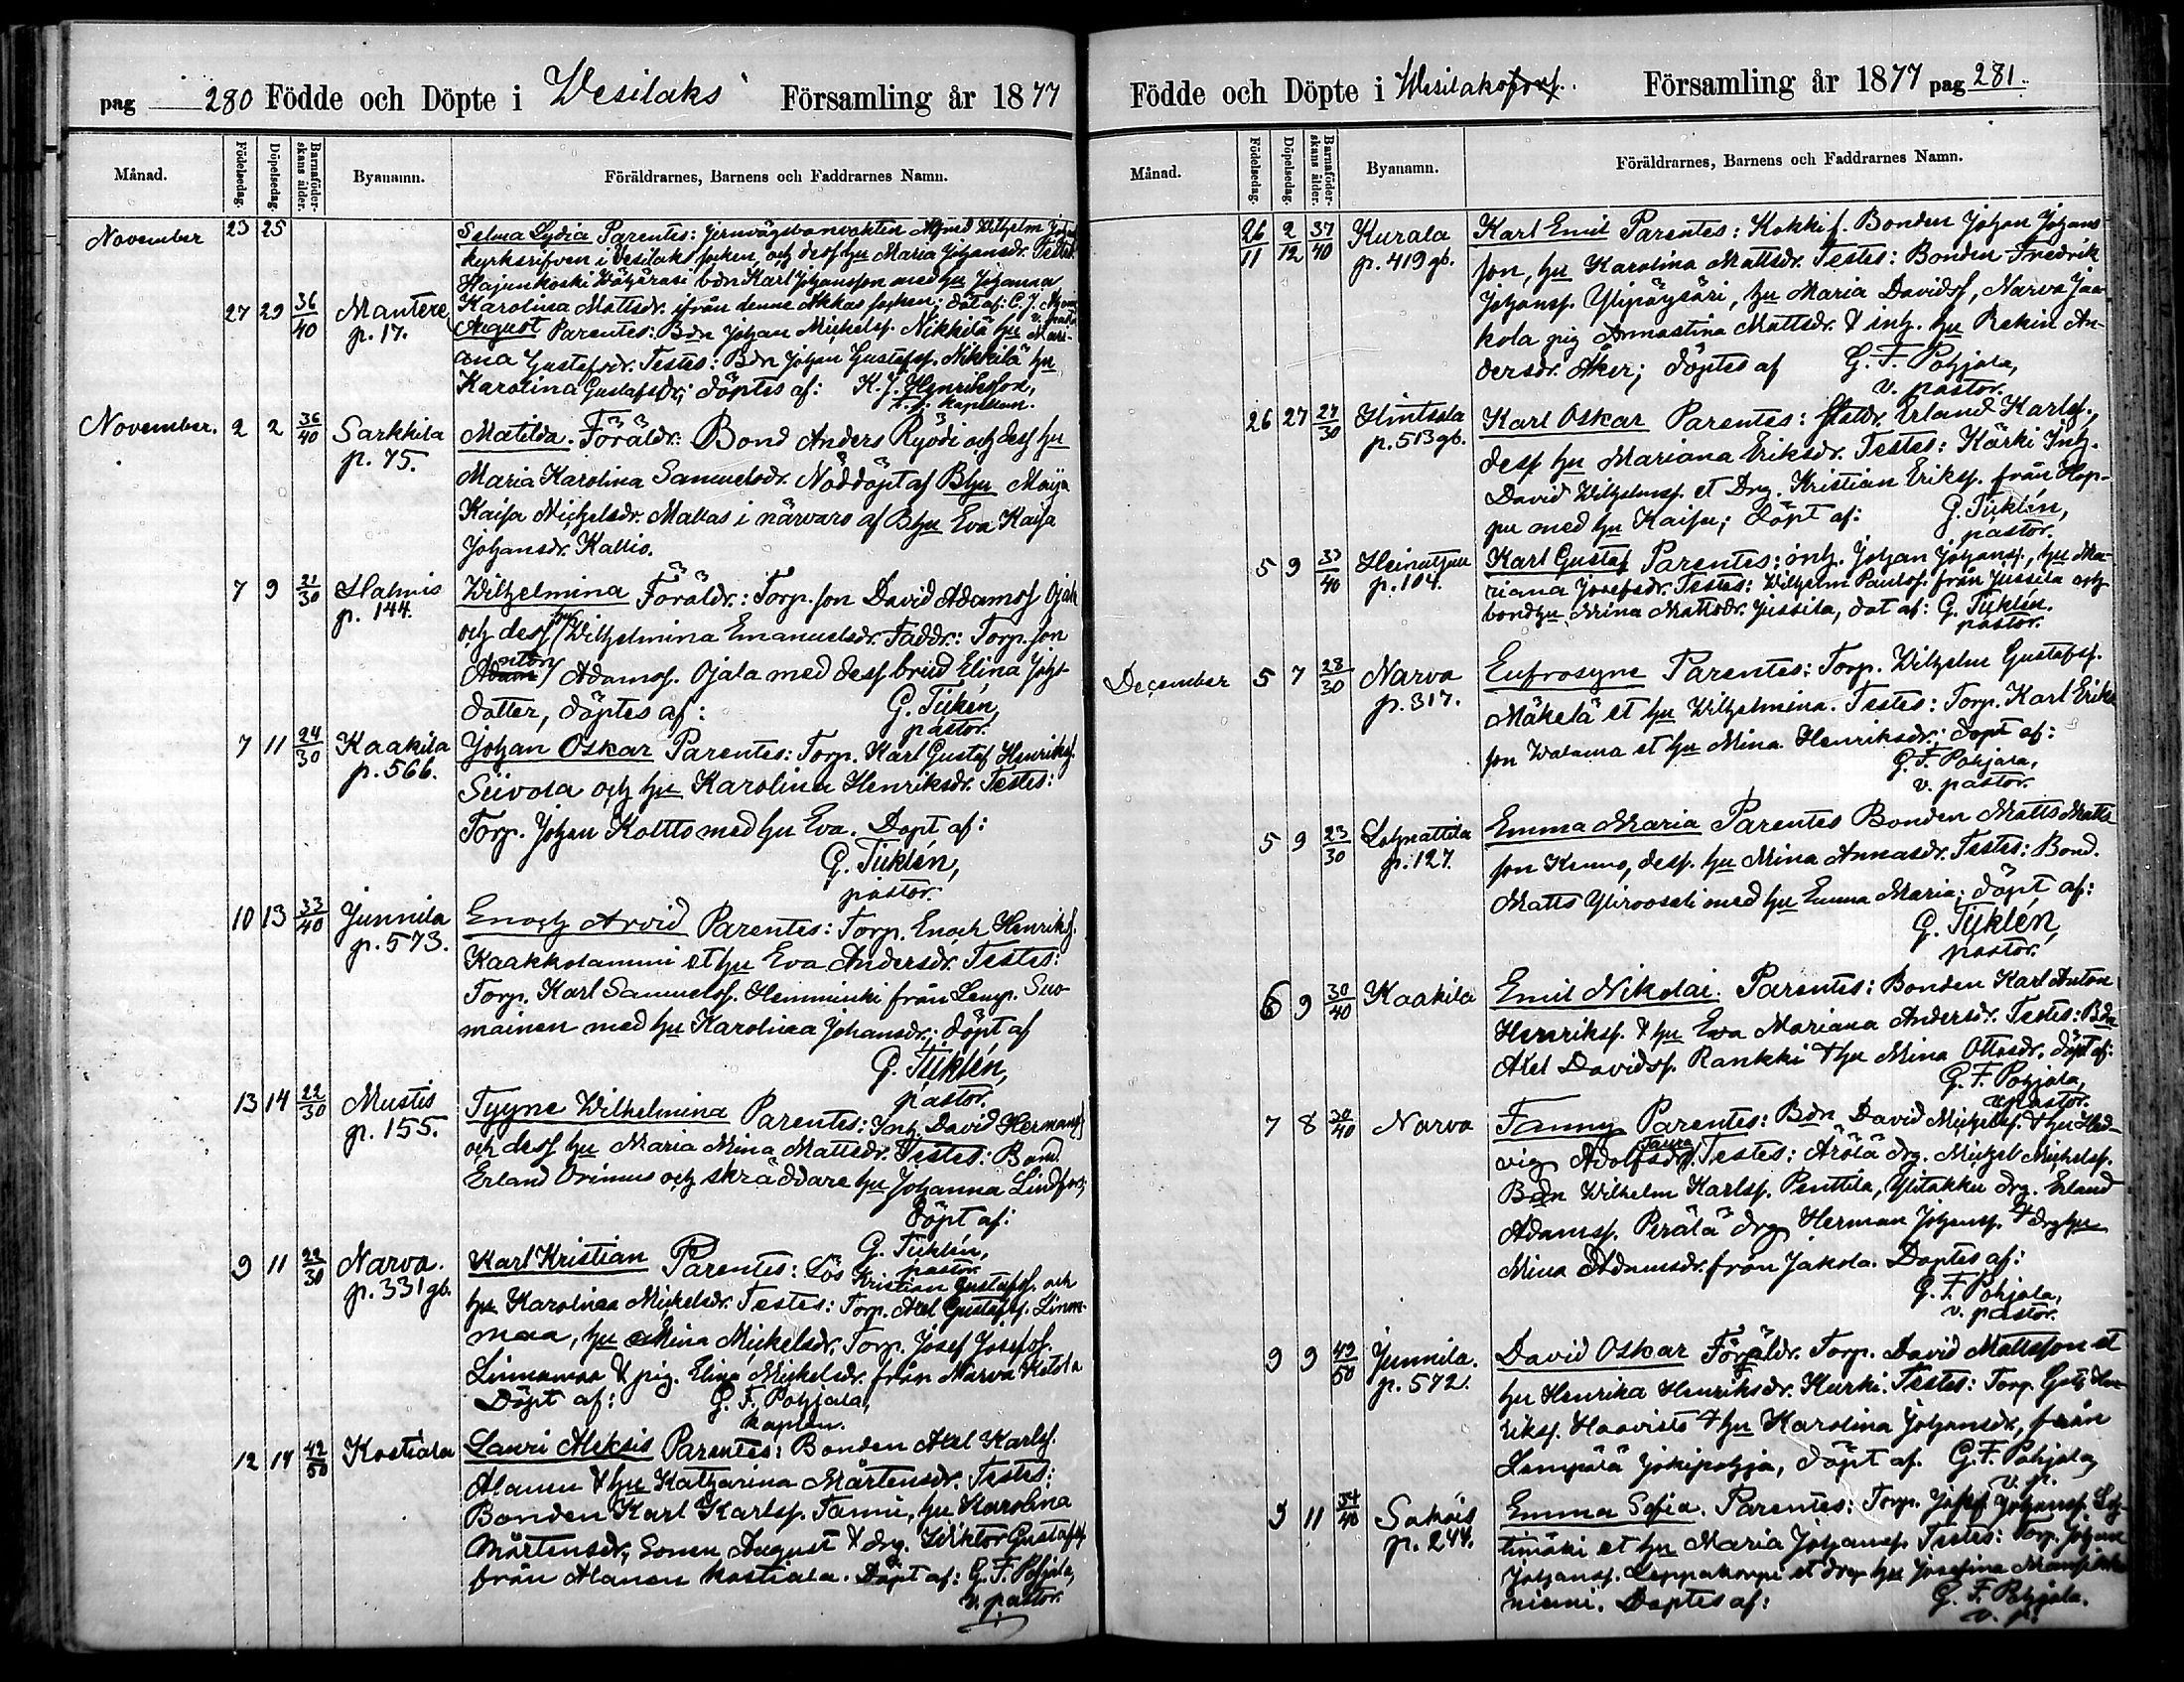 pag 280 Födde och Döpte i Wesilaks Församling år 1877
Månad.
Födelsedag.
Döpelsedag.
Barnaföder-
skans ålder.
Byanamn.
Föräldrarnes, Barnens och Faddrarnes Namn.
November 23 25 Selma Lydia Parentes: jernvägsbanvakten Wilhelm
kyrkskrifven i Vesilaks socken, och dess hu Maria Johansdr. Testes:
bdn Karl Johansson med hu Johanna
Karolina Mattsdr. ifrån denne socken; döt af: C. J.
27 29 36/40 Mantere August Parentes: Bdn Johan Mickelsf. Nikkilä hu Mari-
p. 17.
ana Gustafsdr. Testes: Bdn Johan Gustafsf. Nikkilä hu
Karolina Gustafsdr; döptes af: K. J. Henriksson,
kapellan.
November. 2 2 36/40 Sarkkila Matilda. Föräldr: Bond Anders Ryödi och dess hu
p. 75.
Maria Karolina Samuelsdr. Nöddöpt af Bhu Maija
Kaisa Michelsdr. Mattas i närvaro af Bhu Eva Kaisa
Johansdr. Kallio.
7 9 21/30 Halmis Wilhelmina Föräldr: Torp. son David Adamss Ojala
p. 144.
och dess hu Wilhelmina Emanuelsdr. Faddr: Torp. son
Anton Adamsf. Ojala med dess brud Elina Joh-
dotter, döptes af: G. Tiklén,
pastor.
7 11 24/30 Kaakila Johan Oskar Parentes: Torp. Karl Gustaf Henriksf.
p. 566.
Seivola och hu Karolina Henriksdr. Testes:
Torp. Johan Koltto med hu Eva. Döpt af:
G. Tiklén,
pastor.
10 13 33/40 Junnila Enoch Arvid Parentes: Torp. Enoch Henriksf.
p. 573.
Kaakkolammi et hu Eva Andersdr. Testes:
Torp. Karl Samuelsf. Hemminki från Lemp. Suo-
mainen med hu Karolina Johansdr.; döpt af
G. Tiklén,
pastor.
13 14 22/30 Mustis Tyyne Wilhelmina Parentes: Inh. David Hermansf
p. 155.
och dess hu Maria Mina Mattsdr. Testes: Bond.
Erland Orimus och skräddare hu Johanna Lindfors,
döpt af:
G. Tiklén,
pastor.
9 11 22/30 Narva. Karl Kristian Parentes: Lös Kristian Gustafsf. och
p. 331 gb.
hu Karolina Mickelsdr. Testes: Torp. Axel Gustafsf. Linna-
maa, hu Mina Mickelsdr. Torp. Josef Josefsf.
Linnamaa & pig. Elina Mickelsdr. från Narva Ketola
Döpt af: G. F. Pohjala,
kaplan.
12 14 42/50 Kostiala Lauri Aleksis Parentes: Bonden Axel Karlsf.
Alanen & hu Katharina Mårtensdr. Testes:
Bonden Karl Karlsf. Tanni, hu Karolina
Mårtensdr, Sonen August & drg. Wiktor Gustafsf
från Alanen Kostiala. Döpt af: G. F. Pohjala,
v. pastor.
Födde och Döpte i Wesilaks Församling år 1877 pag 281.
Månad.
Födelsedag.
Döpelsedag.
Barnaföder-
skans ålder.
Byanamn.
Föräldrarnes, Barnens och Faddrarnes Namn.
26/11 2/12 37/40 Kurala Karl Emil Parentes: Kokki f. Bonden Johan Johans-
p. 419 gb.
son, hu Karolina Mattsdr. Testes: Bonden Fredrik
Johansf. Ylipöysäri, hu Maria Davidsf, Narva Jaa-
kola pig Annastina Mattsdr. & inh. hu Rekin An-
dersdr. Åker; döptes af G. F. Pohjala,
v. pastor.
26 27 27/30 Hintsala Karl Oskar Parentes: Statdr. Erland Karlsf.,
p. 513 gb.
dess hu Mariana Eriksdr. Testes: Kärki Inh.
David Wilhelmsf. et Drg. Kristian Eriksf. från Hop-
pu med hu Kaisa; döpt af: G. Tiklén,
pastor.
5 9 33/40 Karl Gustaf Parentes: inh. Johan Johansf., hu Ma-
p. 104.
riana Josefsdr. Testes: Wilhelm Paulsf. från Jussila och
bondhu Mina Mattsdr. Jussila, döt af: G. Tiklén.
pastor.
December 5 7 28/30 Narva Eufrosyne Parentes: Torp. Wilhelm Gustafsf.
p. 317.
Mäkelä et hu Wilhelmina. Testes: Torp. Karl Eriks-
son Walama et hu Mina Henriksdr; döpt af:
G. F. Pohjala,
v. pastor.
5 9 23/30 Lohpattila Emma Maria Parentes Bonden Matts Matts-
p. 127.
son, dess. hu Mina Annasdr. Testes: Bond.
Matts Yliroosti med hu Emma Maria; döpt af:
G. Tiklén,
pastor.
6 9 30/40 Kaakila Emil Nikolai. Parentes: Bonden Karl Anton
Henriksf. & hu Eva Mariana Andersdr. Testes: Bdn
Axel Davidsf. Rankki & hu Mina Ottosdr. döpt af:
G. F. Pohjala,
v. pastor.
7 8 30/40 Narva Fanny Parentes: Bdn David Mickelsf. & hu Hed-
vig Adolfsdr. Testes: Arölä drg. Michel Michelsf.
Bdn Wilhelm Karlsf. Penttila, Ylitakku drg. Erland
Adamsf. Perälä drg Herman Johansf. & drghu
Mina Adamsdr. från Jakola. Döptes af:
G. F. Pohjala,
v. pastor.
9 9 49/50 Junnila. David Oskar Föräldr. Torp. David Mattsson et
p. 572.
hu Henrika Henriksdr. Kurki. Testes: Torp.
riksf. Haavisto & hu Karolina Johansdr, från
Lempälä Jokipohja, döpt af. G. F. Pohjala,
v. p.
9 11 34/40 Sakois Emma Sofia. Parentes: Torp. Josef Johansf. Leh-
p. 244.
timäki et hu Maria Johansf. Testes: Torp. Johan
Johansf. Leppäkorpi et drg hu Josefina
niemi. Döptes af: G. F. Pohjala.
v. p.